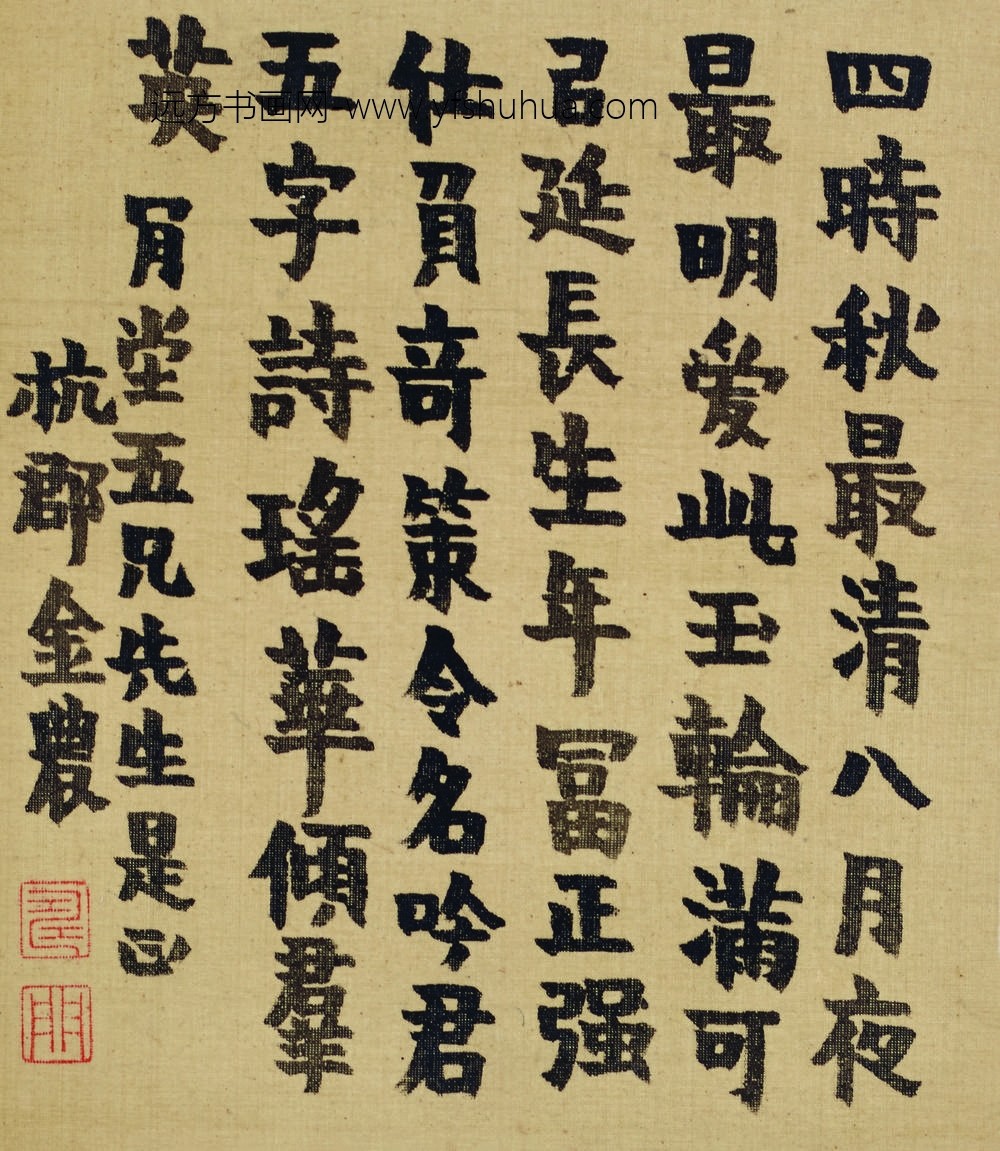 四時秋最清八月夜
最明爱此玉輪滿可
㠯延長生年冨正强
仕負竒策令名吟君
五字詩瑤華傾羣
英
肙堂五兄先生是正
杭郡金農
远方书画网 www.yfshuhua.com